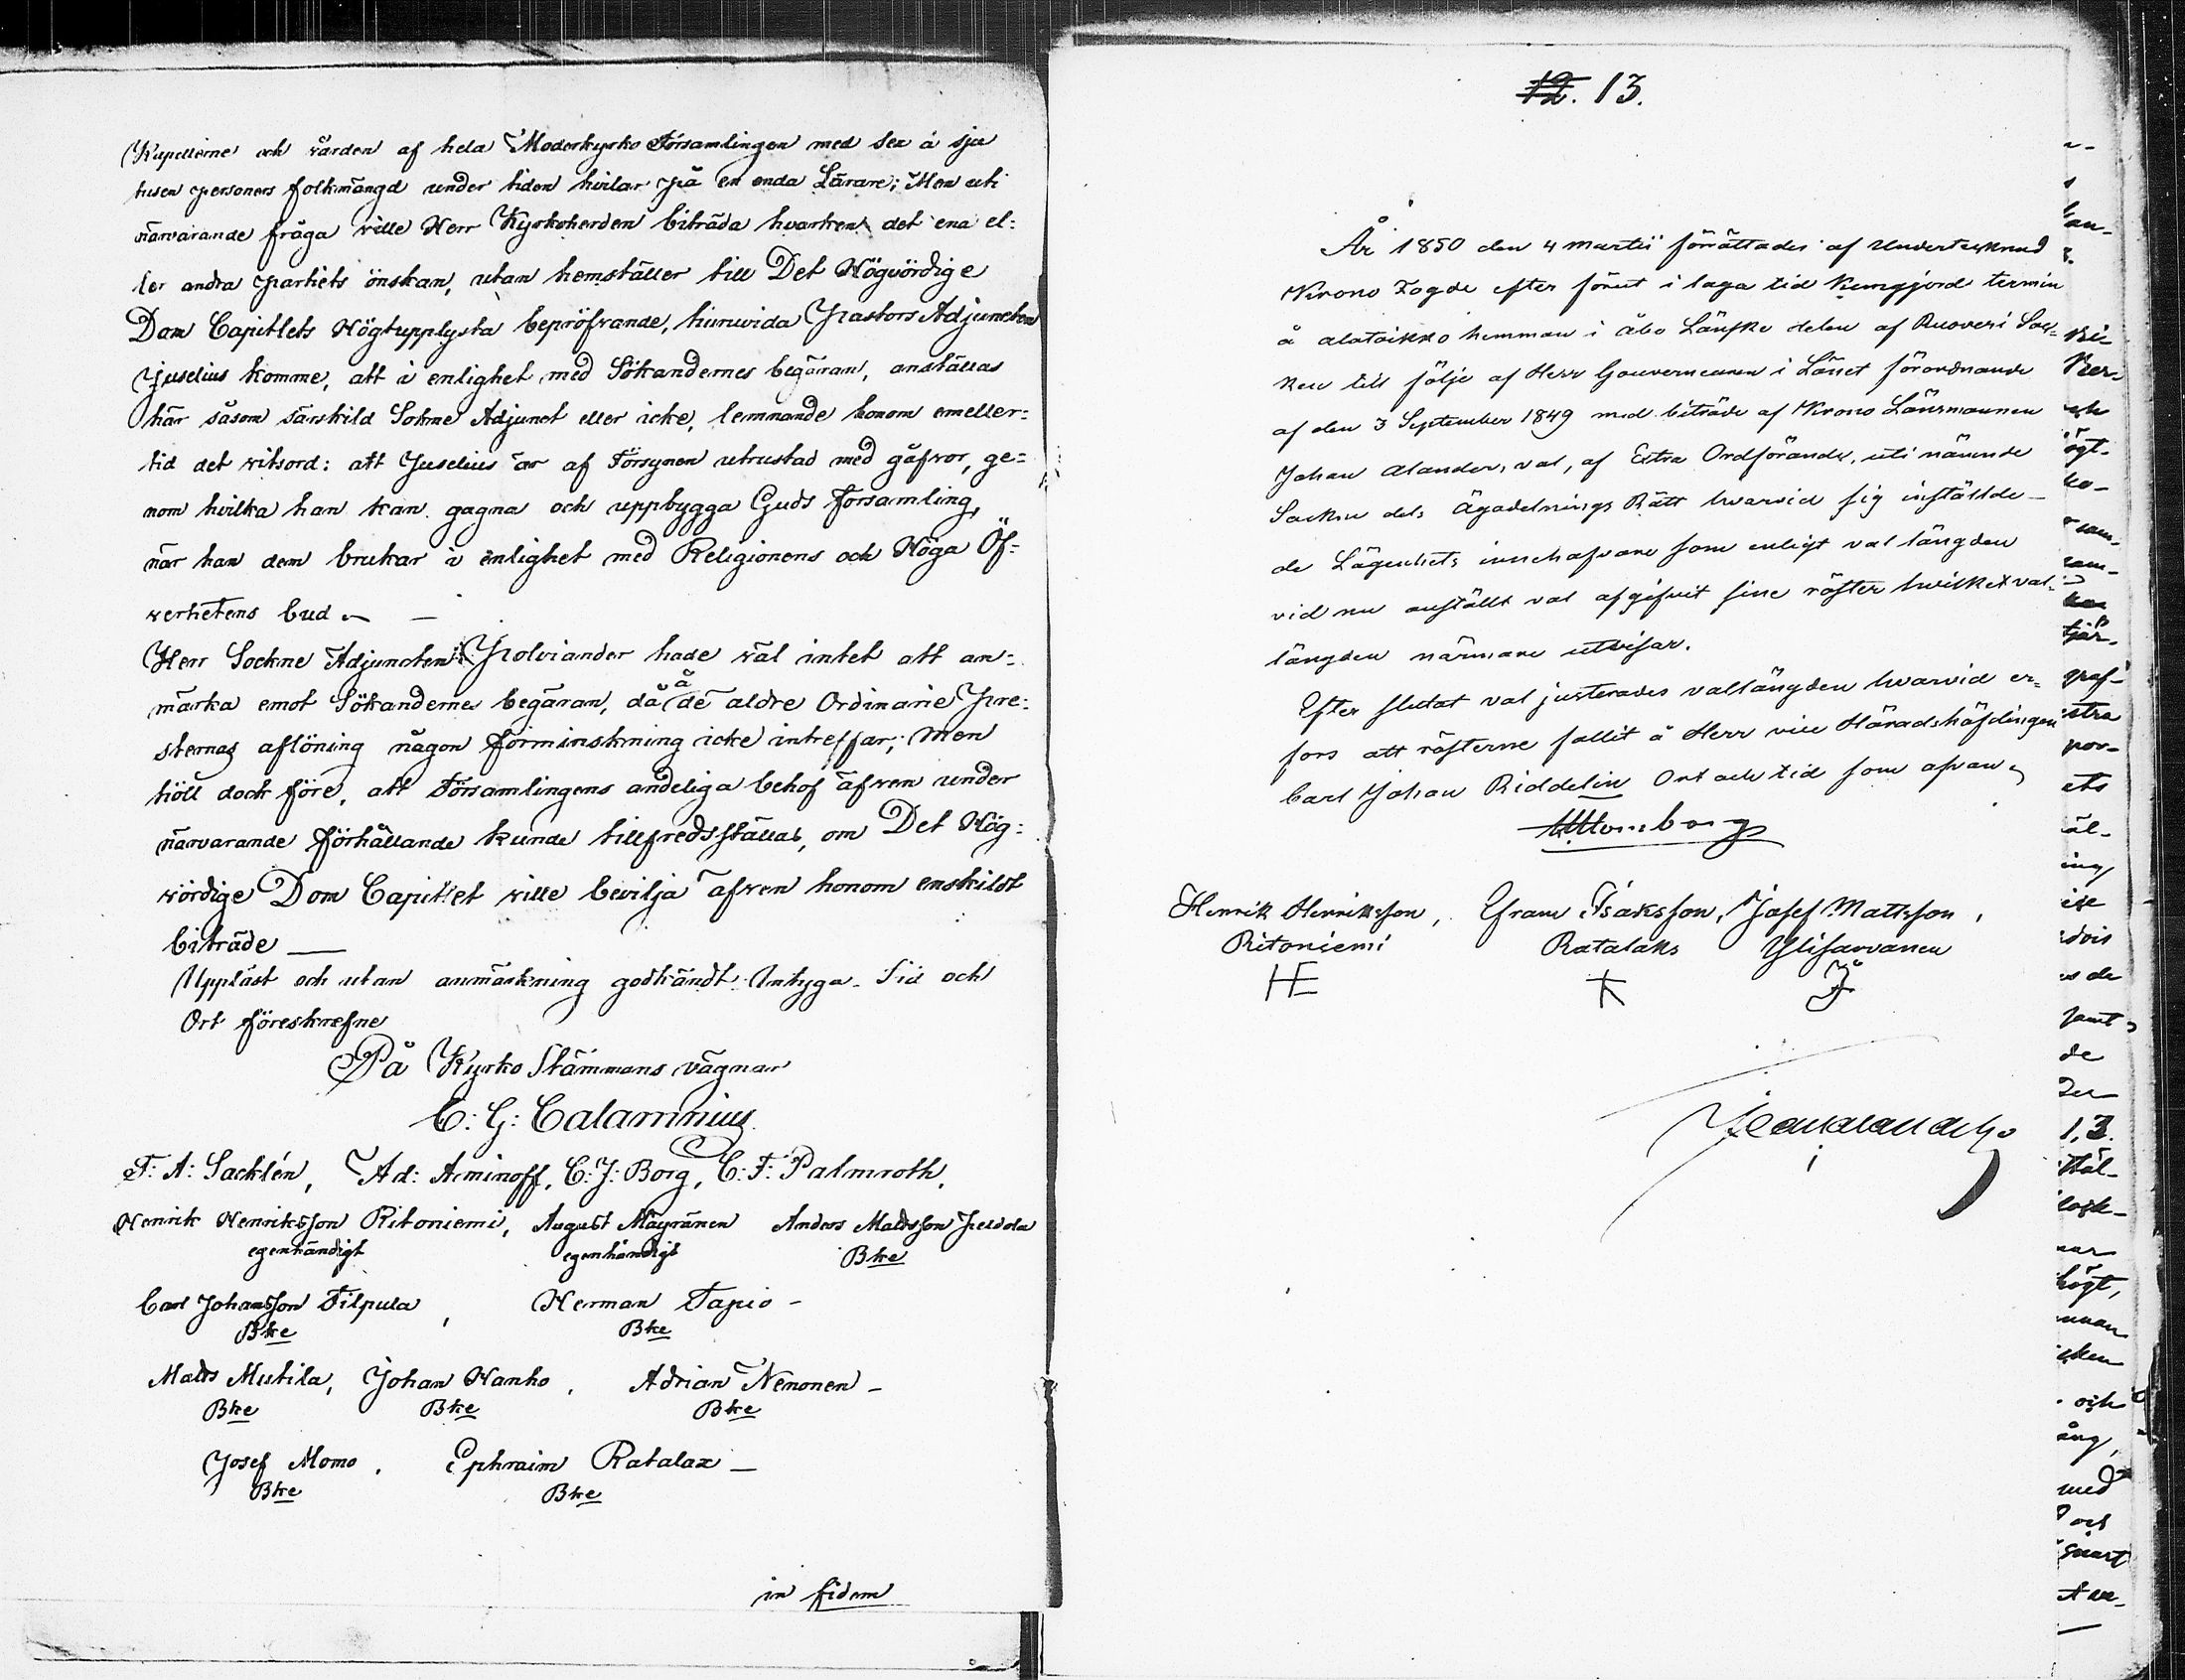 Kapellerne och vården af hela Moderkyrko Församlingen med sex à sju
tusen personers folkmängd under tiden hvilar på en enda Lärare; Men uti
närvarande fråga ville Herr Kyrkoherden biträda hvarken det ena el:
ler andra partiets önskan, utan hemställer till Det Högvördige
Dom Capitlets Högtupplysta bepröfvande, huruvida Pastors Adjuncten
Juselius komme, att i enlighet med Sökandernes begäran, anställas
här såsom särskild Sokne Adjunct eller icke, lemnande honom emeller:
tid det vitsord: att Juselius är af Försynen utrustad med gåfvor, ge=
nom hvilka han kan gagna och uppbygga Guds församling,
när han dem brukar i enlighet med Religionens och Höga Öf=
verhetens bud —
Herr Sockne Adjuncten Polviander hade väl intet att an=
märka emot Sökandernes begäran, då å de äldre Ordinarie Pre:
sternas aflöning någon förminskning icke inträffar; Men
höll dock före, att Församlingens andeliga behof äfven under
närvarande förhållande kunde tillfredsställas, om Det Hög:
vördige Dom Capitlet ville bevilja äfven honom enskildt
biträde —
Uppläst och utan anmärkning godkändt. Intyga. Tid och
Ort föreskrefne
På Kyrko Stämmans vägnar
C: G: Calamnius
F: A: Sacklén, Ad: Aminoff, C: J: Borg, C: F: Palmroth,
Henrik Henriksson Ritoniemi, August Mäyränen Anders Mattsson
egenhändigt egenhändigt Bke
Carl Johansson Filpula, Herman Tapio -
Bke Bke
Matts Mutila, Johan Hanho, Adrian Nenonen -
Bke Bke Bke
Josef Momo, Ephraim Ratalax —
Bke Bke
in fidem
12. 13.
År 1850 den 4 martii förättades af Undertecknad
Krono Fogde efter förut i laga tid kungjord termin
å Alatoikko hemman i Åbo Länske delen af Ruovesi Soc=
ken till följe af Herr Gouverneuren i Länet förordnande
af den 3 September 1849 med biträde af Krono Länsmannen
Johan Alander, val, af Extra Ordförande, uti nämnde
Socken dels Ägodelnings Rätt hvarvid sig inställde
de Lägenhets innehafvare som enligt val längden
vid nu anställt val afgifvit sine röster hvilket val
längden närmare utvisar.
Efter slutat val justerades vallängden hvarvid er=
fors att rösterne fallit å Herr vice Häradshöfdingen
Carl Johan Riddelin Ort och tid som ofvan
Henrik Henriksson, Efram Isaksson, Josef Mattsson,
Ritoniemi Ratalaks Ylisarvanen
HE